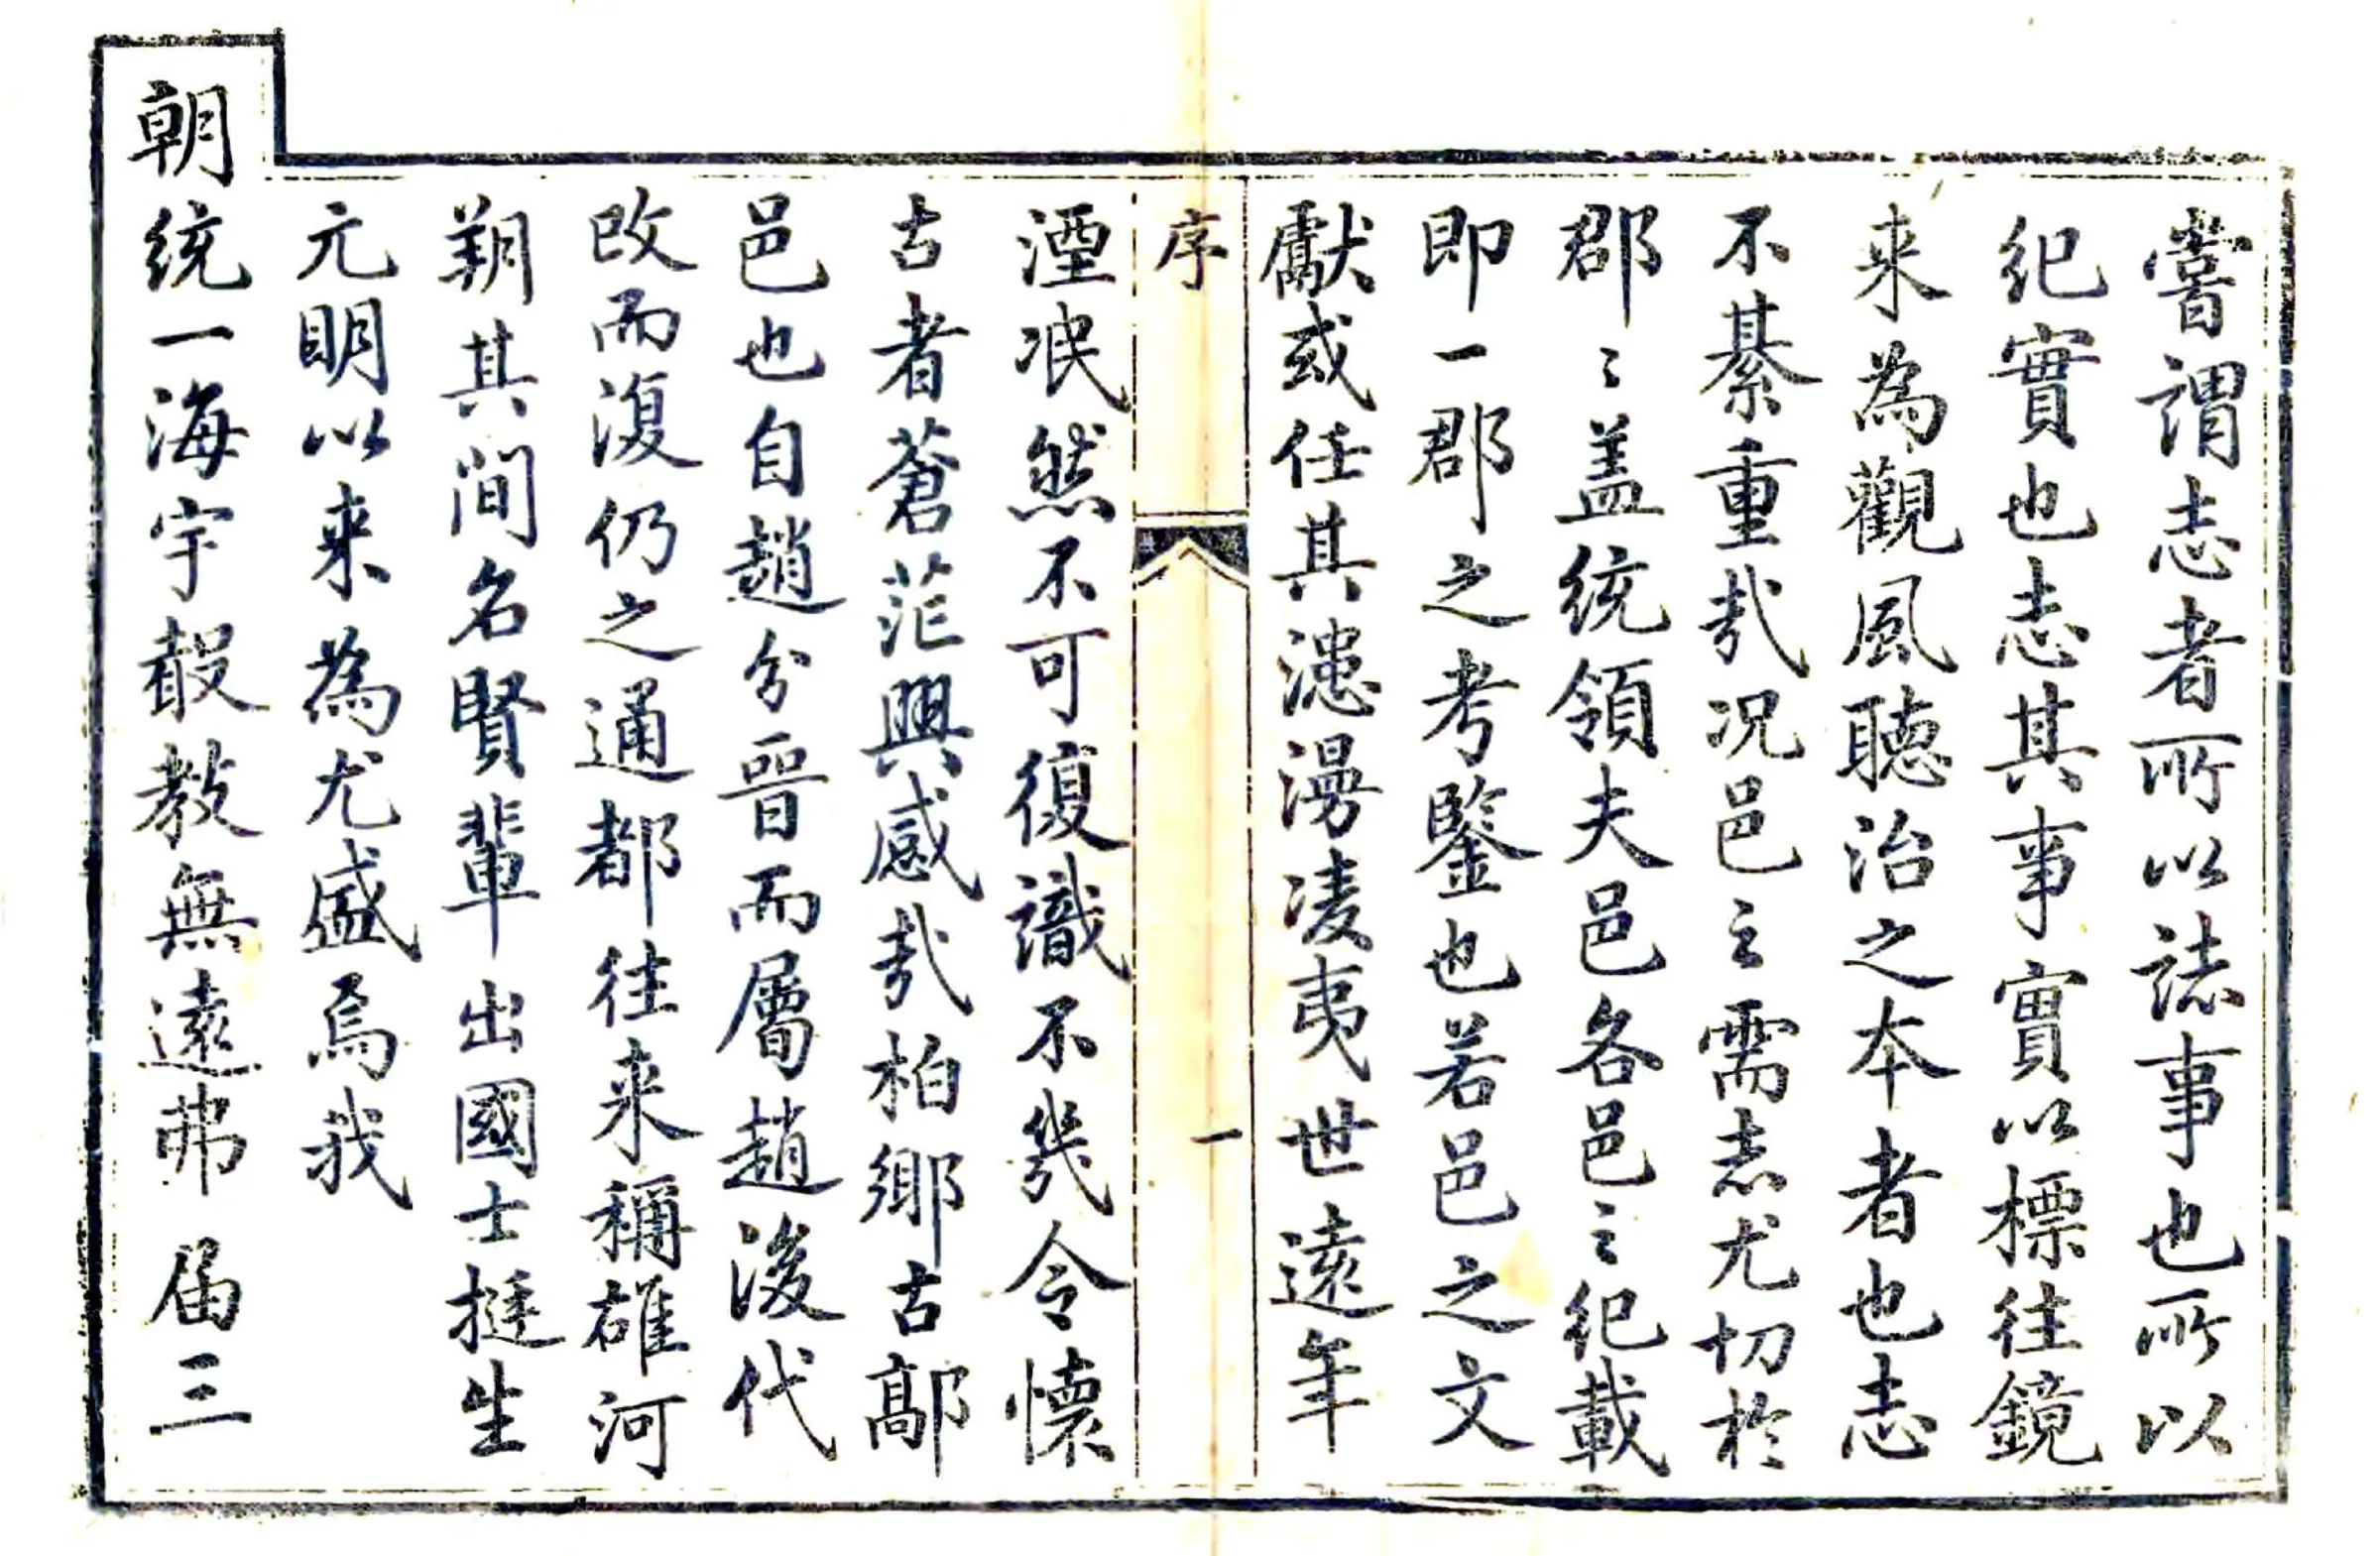 嘗謂志者所以誌事也所以
紀實也志其事實以標往鏡
来為觀風聽治之本者也志
不綦重㢤况邑之需志尤切於
郡〻盖统領夫邑各邑之紀載
即一郡之考鑒也若邑之文
獻或任其漶漫凌夷世遠年
序
一
湮冺然不可復識不幾令懷
古者蒼茫興感㢤柏鄉古鄗
邑也自趙分晉而屬趙後代
改而復仍之通都往来稱雄河
朔其间名賢輩出國士挺生
元明以来為尤盛焉我
朝统一海宇聲教無遠弗届三